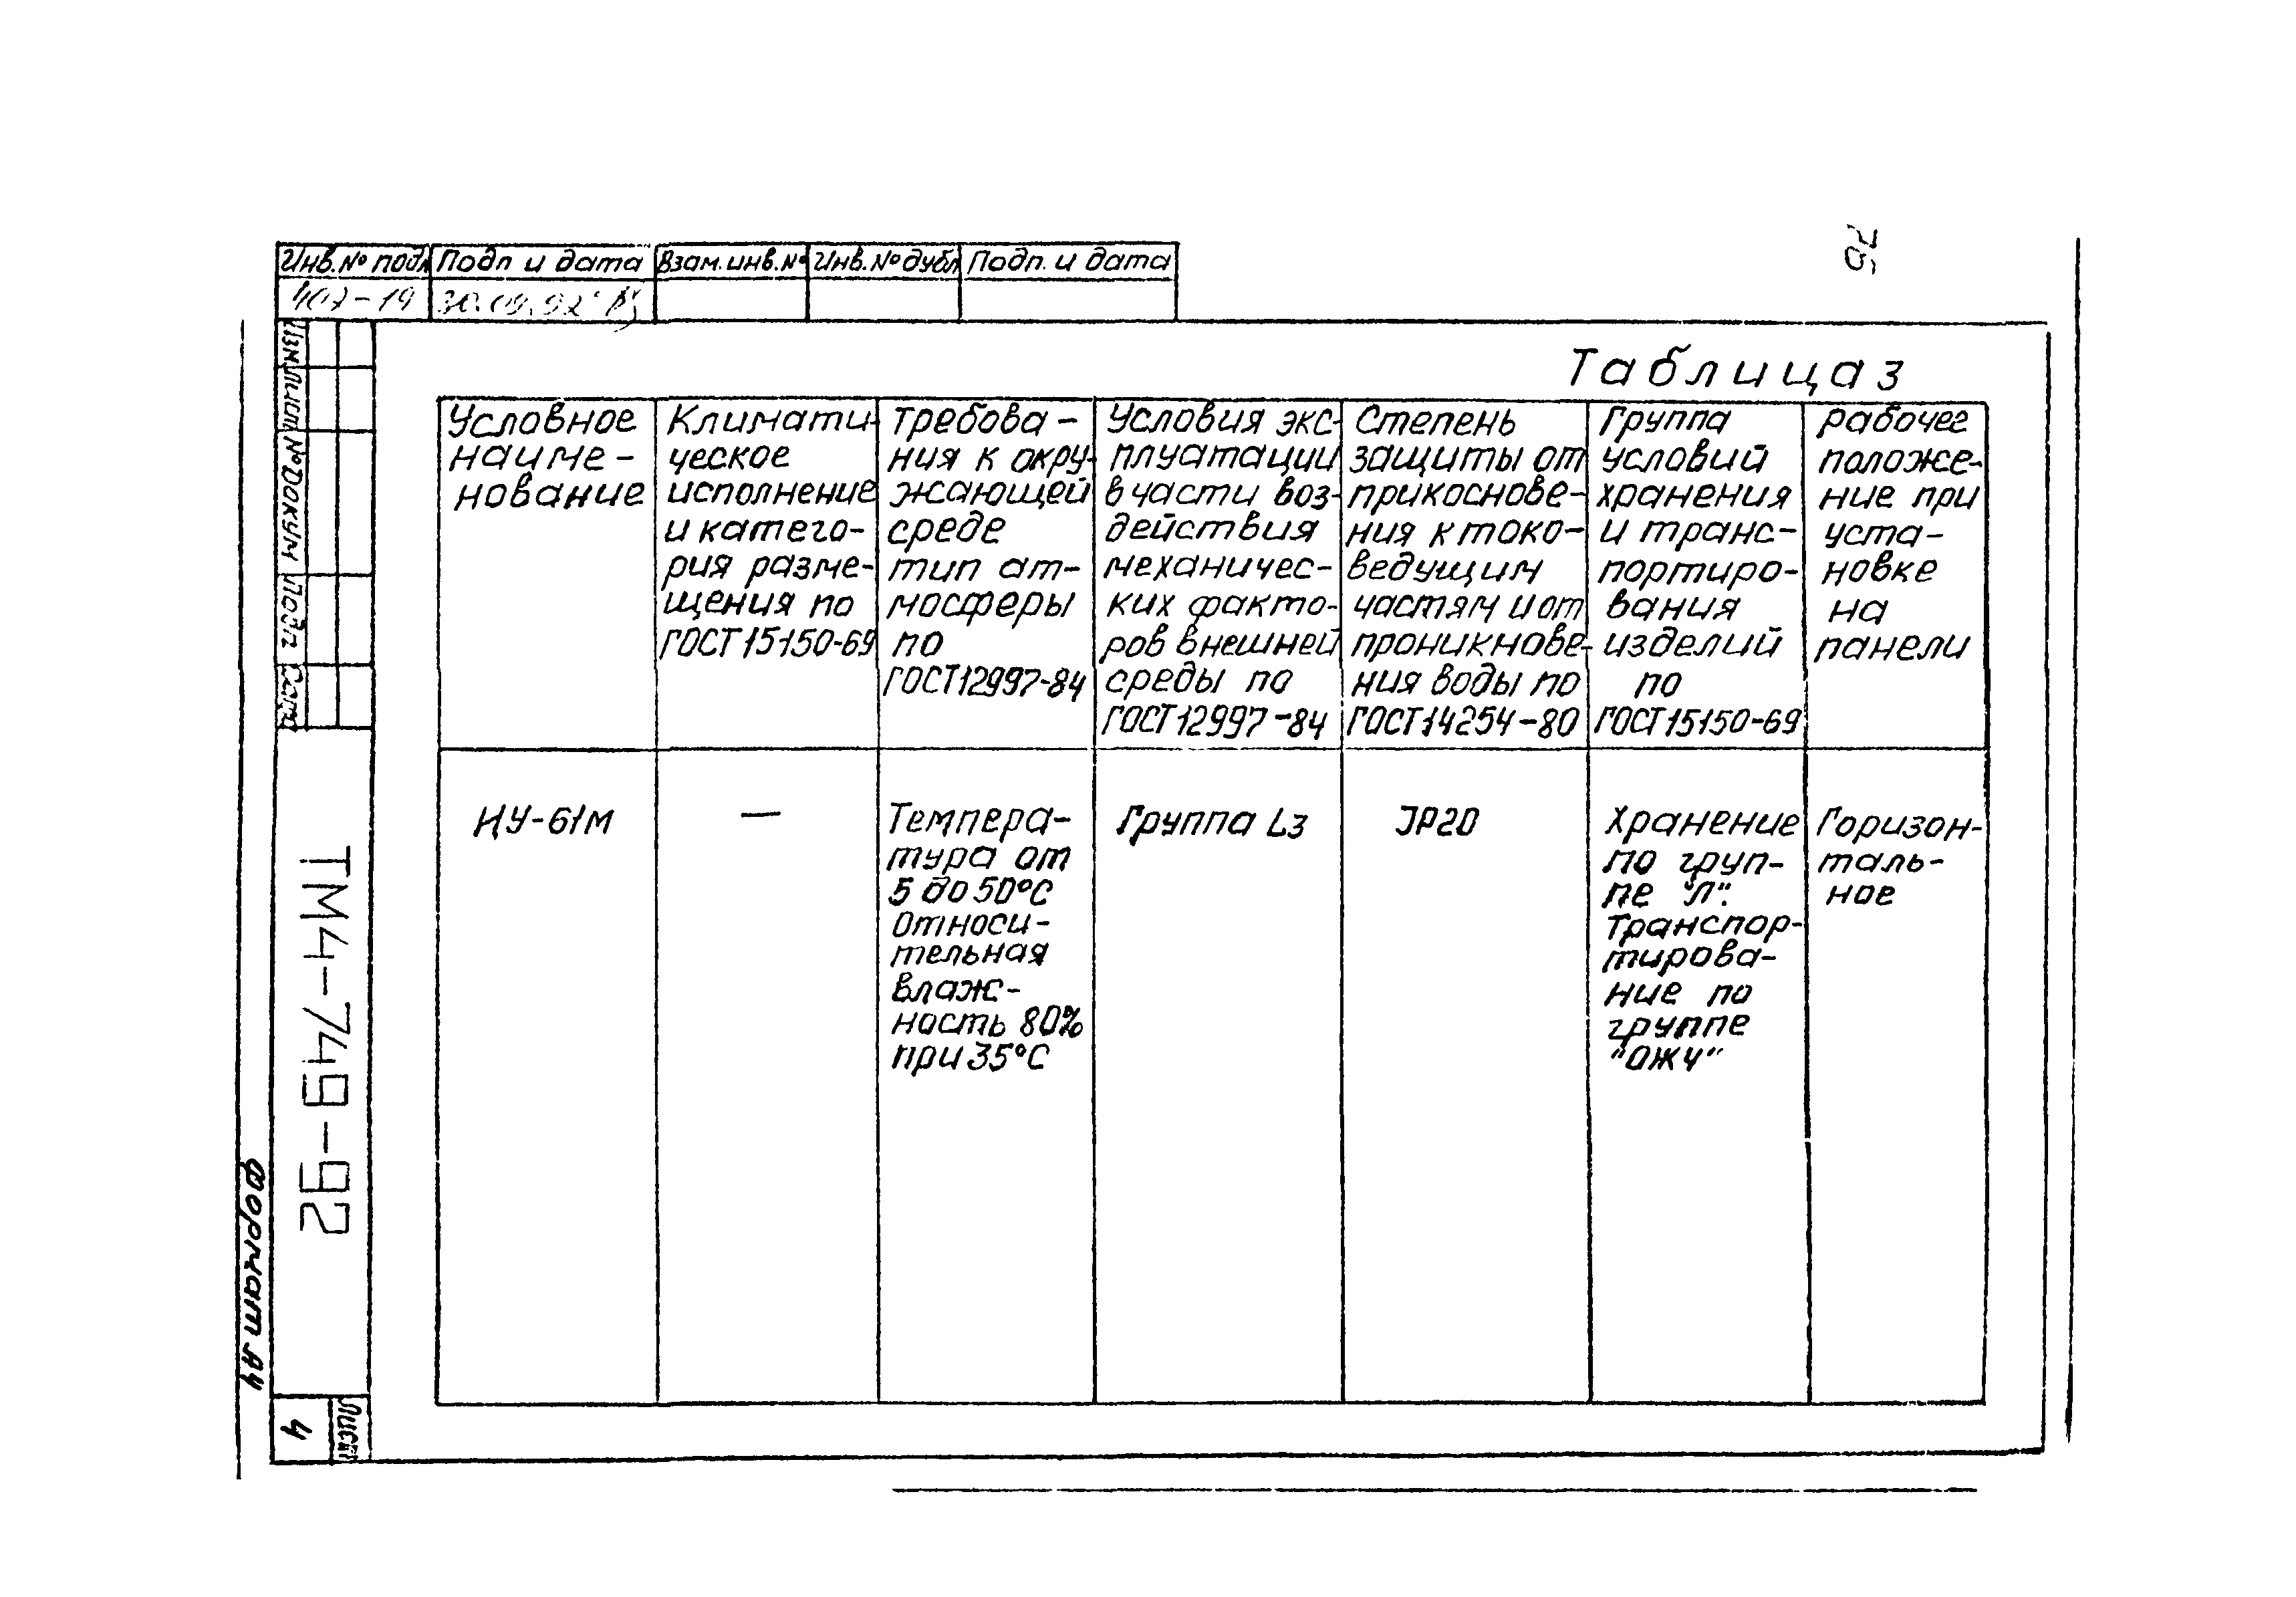 Инв.№ подл
Подп и дата
Взам.инв.№
Инв.№ дубл
Подп. и дата
407-19
30.09.92
Таблица 3
Условное
наиме-
нование
Климати-
ческое
исполнение
и катего-
рия разме-
щения по
ГОСТ15150-69
Требова-
ния к окру-
жающей
среде
тип ат-
мосферы
по
ГОСТ12997-84
Условия экс-
плуатации
в части воз-
действия
механичес-
ких факто-
ров внешней
среды по
ГОСТ12997-84
Степень
защиты от
прикоснове-
ния к токо-
ведущим
частям и от
проникнове-
ния воды по
ГОСТ14254-80
Группа
условий
хранения
и транс-
портиро-
вания
изделий
по
ГОСТ15150-69
Рабочее
положе-
ние при
уста-
новке
на
панели
НУ-61М
—
Темпера-
тура от
5 до 50°С
Относи-
тельная
влаж-
ность 80%
при 35°С
Группа L3
JP20
Хранение
по груп-
пе "Л".
Транспор-
тирова-
ние по
группе
"ОЖ4"
Горизон-
таль-
ное
Изм.
Лист
№ докум
Подп
Дата
ТМ4-749-92
Лист
4
Формат А4